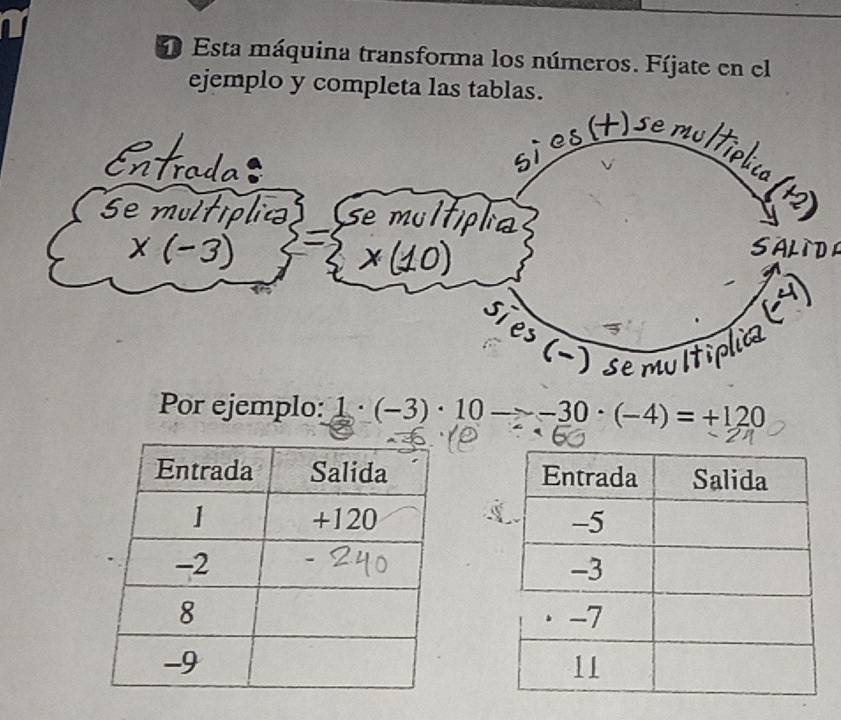 1 Esta máquina transforma los números. Fíjate en el
ejemplo y completa las tablas.
Entrada:
se multiplica
x (-3)
=
se multiplica
x (10)
si es (+) se multiplica (+2)
SALIDA
si es (-) se multiplica (-4)
Por ejemplo: 1 · (−3) · 10 → −30 · (−4) = +120
Entrada Salida
1 +120
−2 - 240
8
−9
Entrada Salida
−5
−3
−7
11